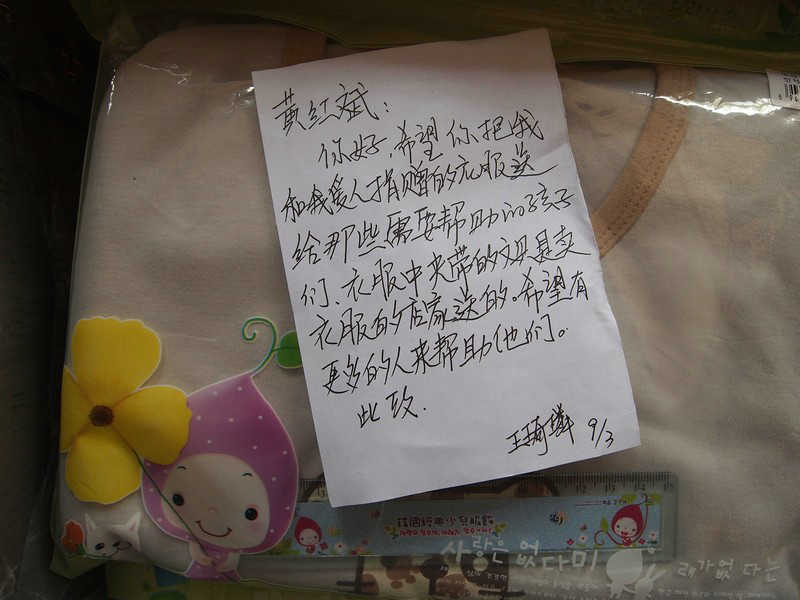 黄红斌:
你好,希望你把我
和我爱人捐赠的衣服送
给那些需要帮助的孩子
们、衣服中夹带的文具是卖
衣服的店家送的。希望有
更多的人来帮助他们。
此致.
9/3
韩国经典少儿服饰
사랑은 없다미
래가없 다는